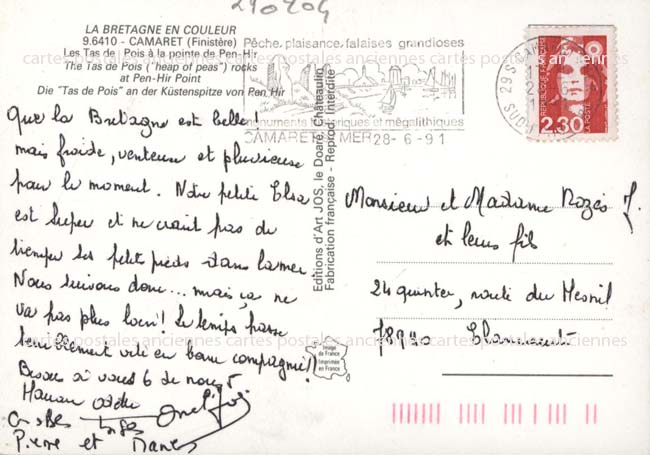 290204
LA BRETAGNE EN COULEUR
9.6410 - CAMARET (Finistère)
Les Tas de Pois à la pointe de Pen-Hir
The Tas de Pois ("heap of peas") rocks
at Pen-Hir Point
Die "Tas de Pois" an der Küstenspitze von Pen Hir
Pêche, plaisance, falaises grandioses
monuments historiques et mégalithiques
CAMARET MER 28-6-91
29 S
SUD
REPUBLIQUE
LA POSTE
2,30
Que la Bretagne est belle!
mais froide, venteuse et pluvieuse
pour le moment. Notre petite Elsa
est super et ne craint pas de
tremper ses petits pieds dans la mer.
Nous suivons donc... mais ça ne
va pas plus loin! Le temps passe
terriblement vite en bonne compagnie!!
Bisous à vous 6 de nous 5
Pierre et
Editions d'Art JOS, le Doaré, Châteaulin
Fabrication française - Reprod. Interdite
Image
de France
Imprimée
en France
Monsieur et Madame
et leurs fils
24 quinter, route du Mesnil
cartes postales anciennes cartes postales anciennes cartes postales anciennes
cartes postales anciennes cartes postales anciennes cartes postales anciennes